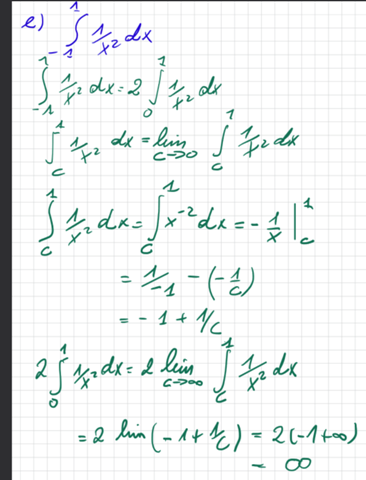 e) ∫_{-1}^{1} 1/x² dx
∫_{-1}^{1} 1/x² dx = 2 ∫_{0}^{1} 1/x² dx
∫_{c}^{1} 1/x² dx = lim_{c→0} ∫_{c}^{1} 1/x² dx
∫_{c}^{1} 1/x² dx = ∫_{c}^{1} x⁻² dx = - 1/x |_{c}^{1}
= 1/-1 - (-1/c)
= -1 + 1/c
2 ∫_{0}^{1} 1/x² dx = 2 lim_{c→∞} ∫_{c}^{1} 1/x² dx
= 2 lim (-1 + 1/c) = 2(-1+∞)
= ∞